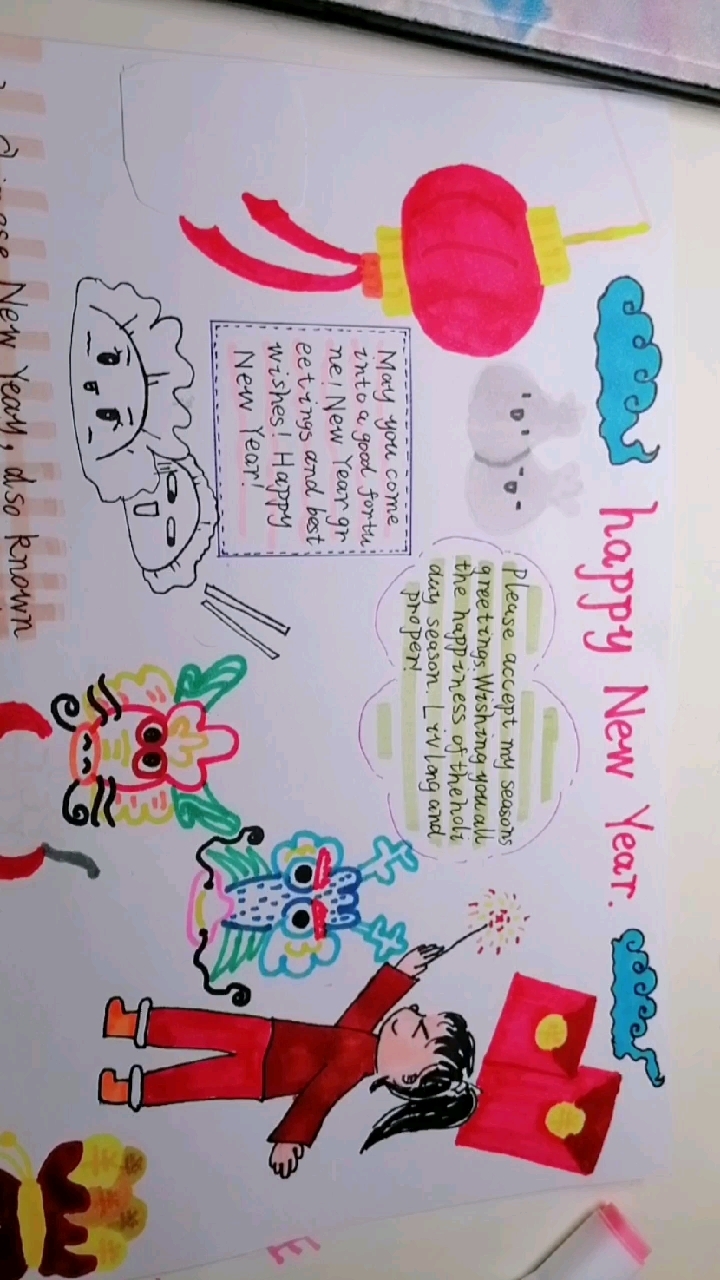 happy New Year.
Please accept my seasons
greetings. Wishing you all
the happiness of the holi
day season. Liv long and
proper!
May you come
into a good fortu
ne! New Year gr
eetings and best
wishes! Happy
New Year!
New Year, also known